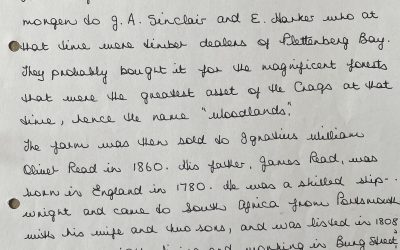 morgen to J. A. Sinclair and E. Harker who at
that time were timber dealers of Plettenberg Bay.
They probably bought it for the magnificent forests
that were the greatest asset of the Crags at that
time, hence the name "Woodlands".
The farm was then sold to Ignatius William
Oliver Read in 1860. His father, James Read, was
born in England in 1780. He was a skilled ship-
wright and came to South Africa from Portsmouth
with his wife and two sons, and was listed in 1808
living and working in Burg Street,